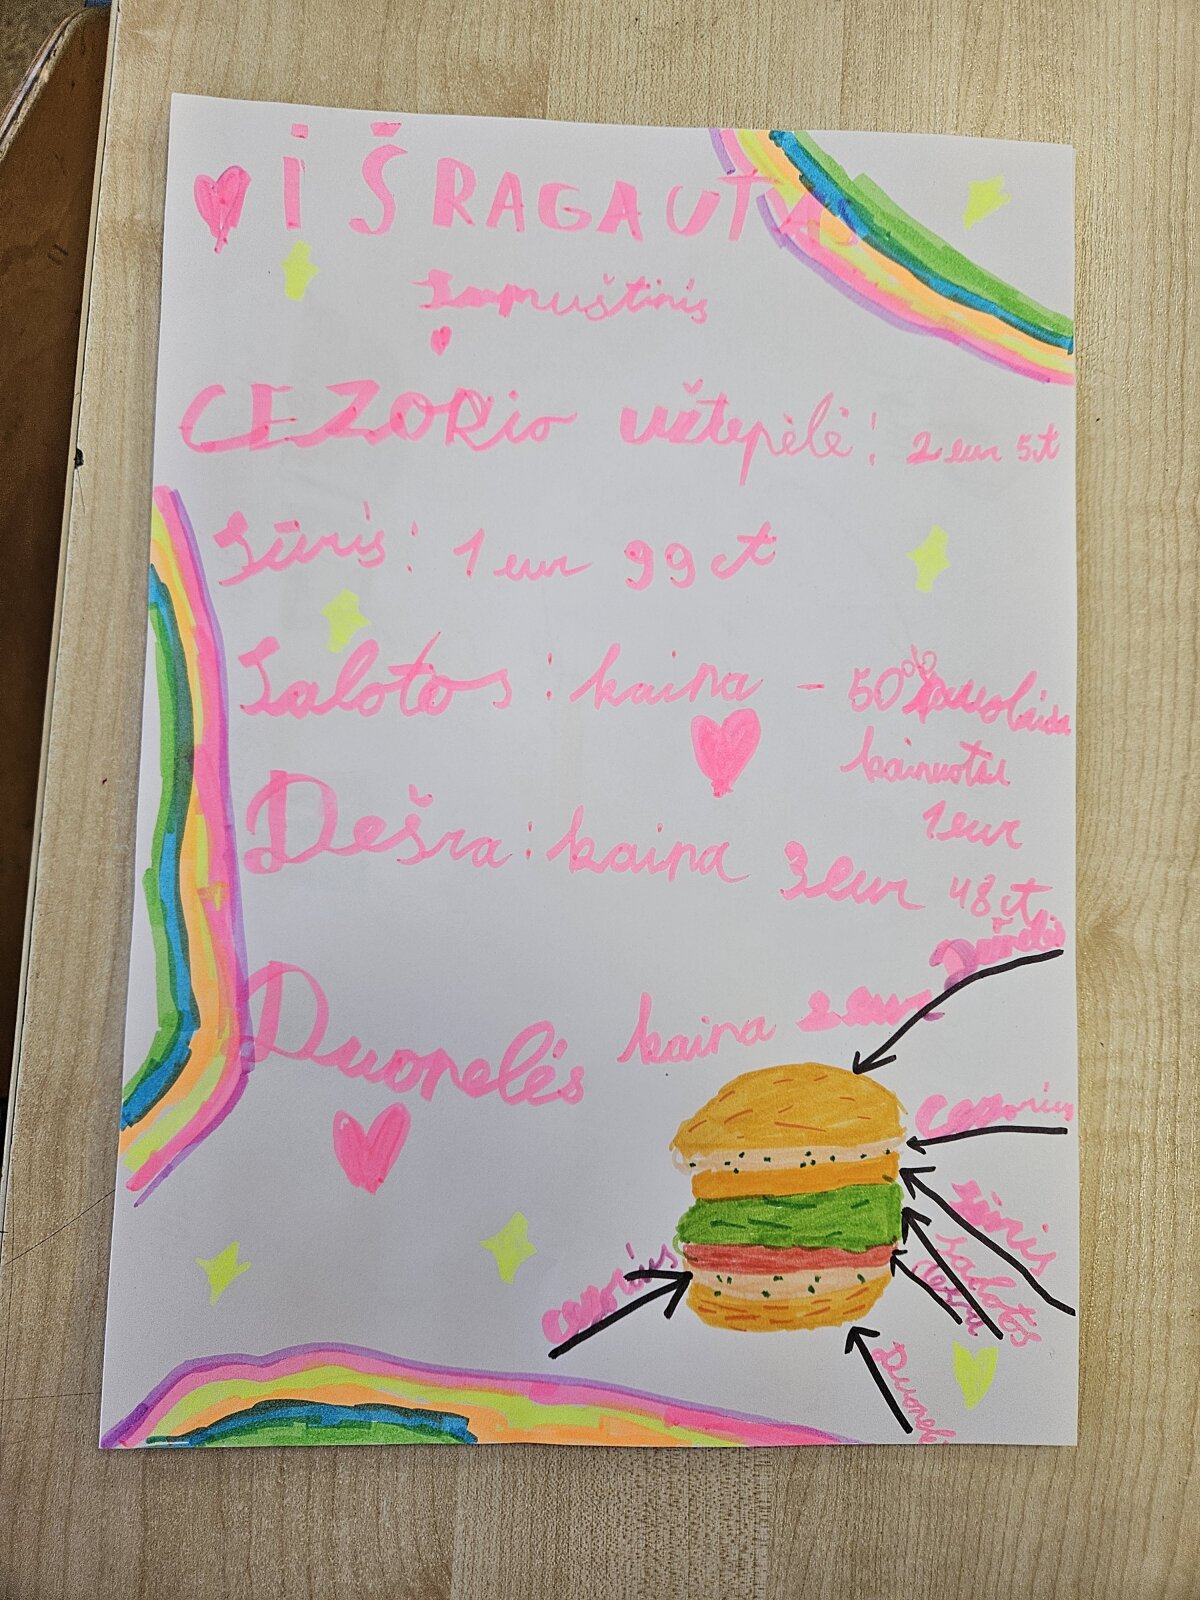 IŠRAGAUTAS
Sumuštinis
CEZORio užtepėlė: 2 eur 5ct
Sūris: 1 eur 99 ct
Salotos: kaina - 50% nuolaida
kainuotu
1 eur
Dešra: kaina 3 eur 48 ct
Duonelės kaina 2 eur
Cezorius
Sūris
Salotos
dešra
cezorius
Duonelė